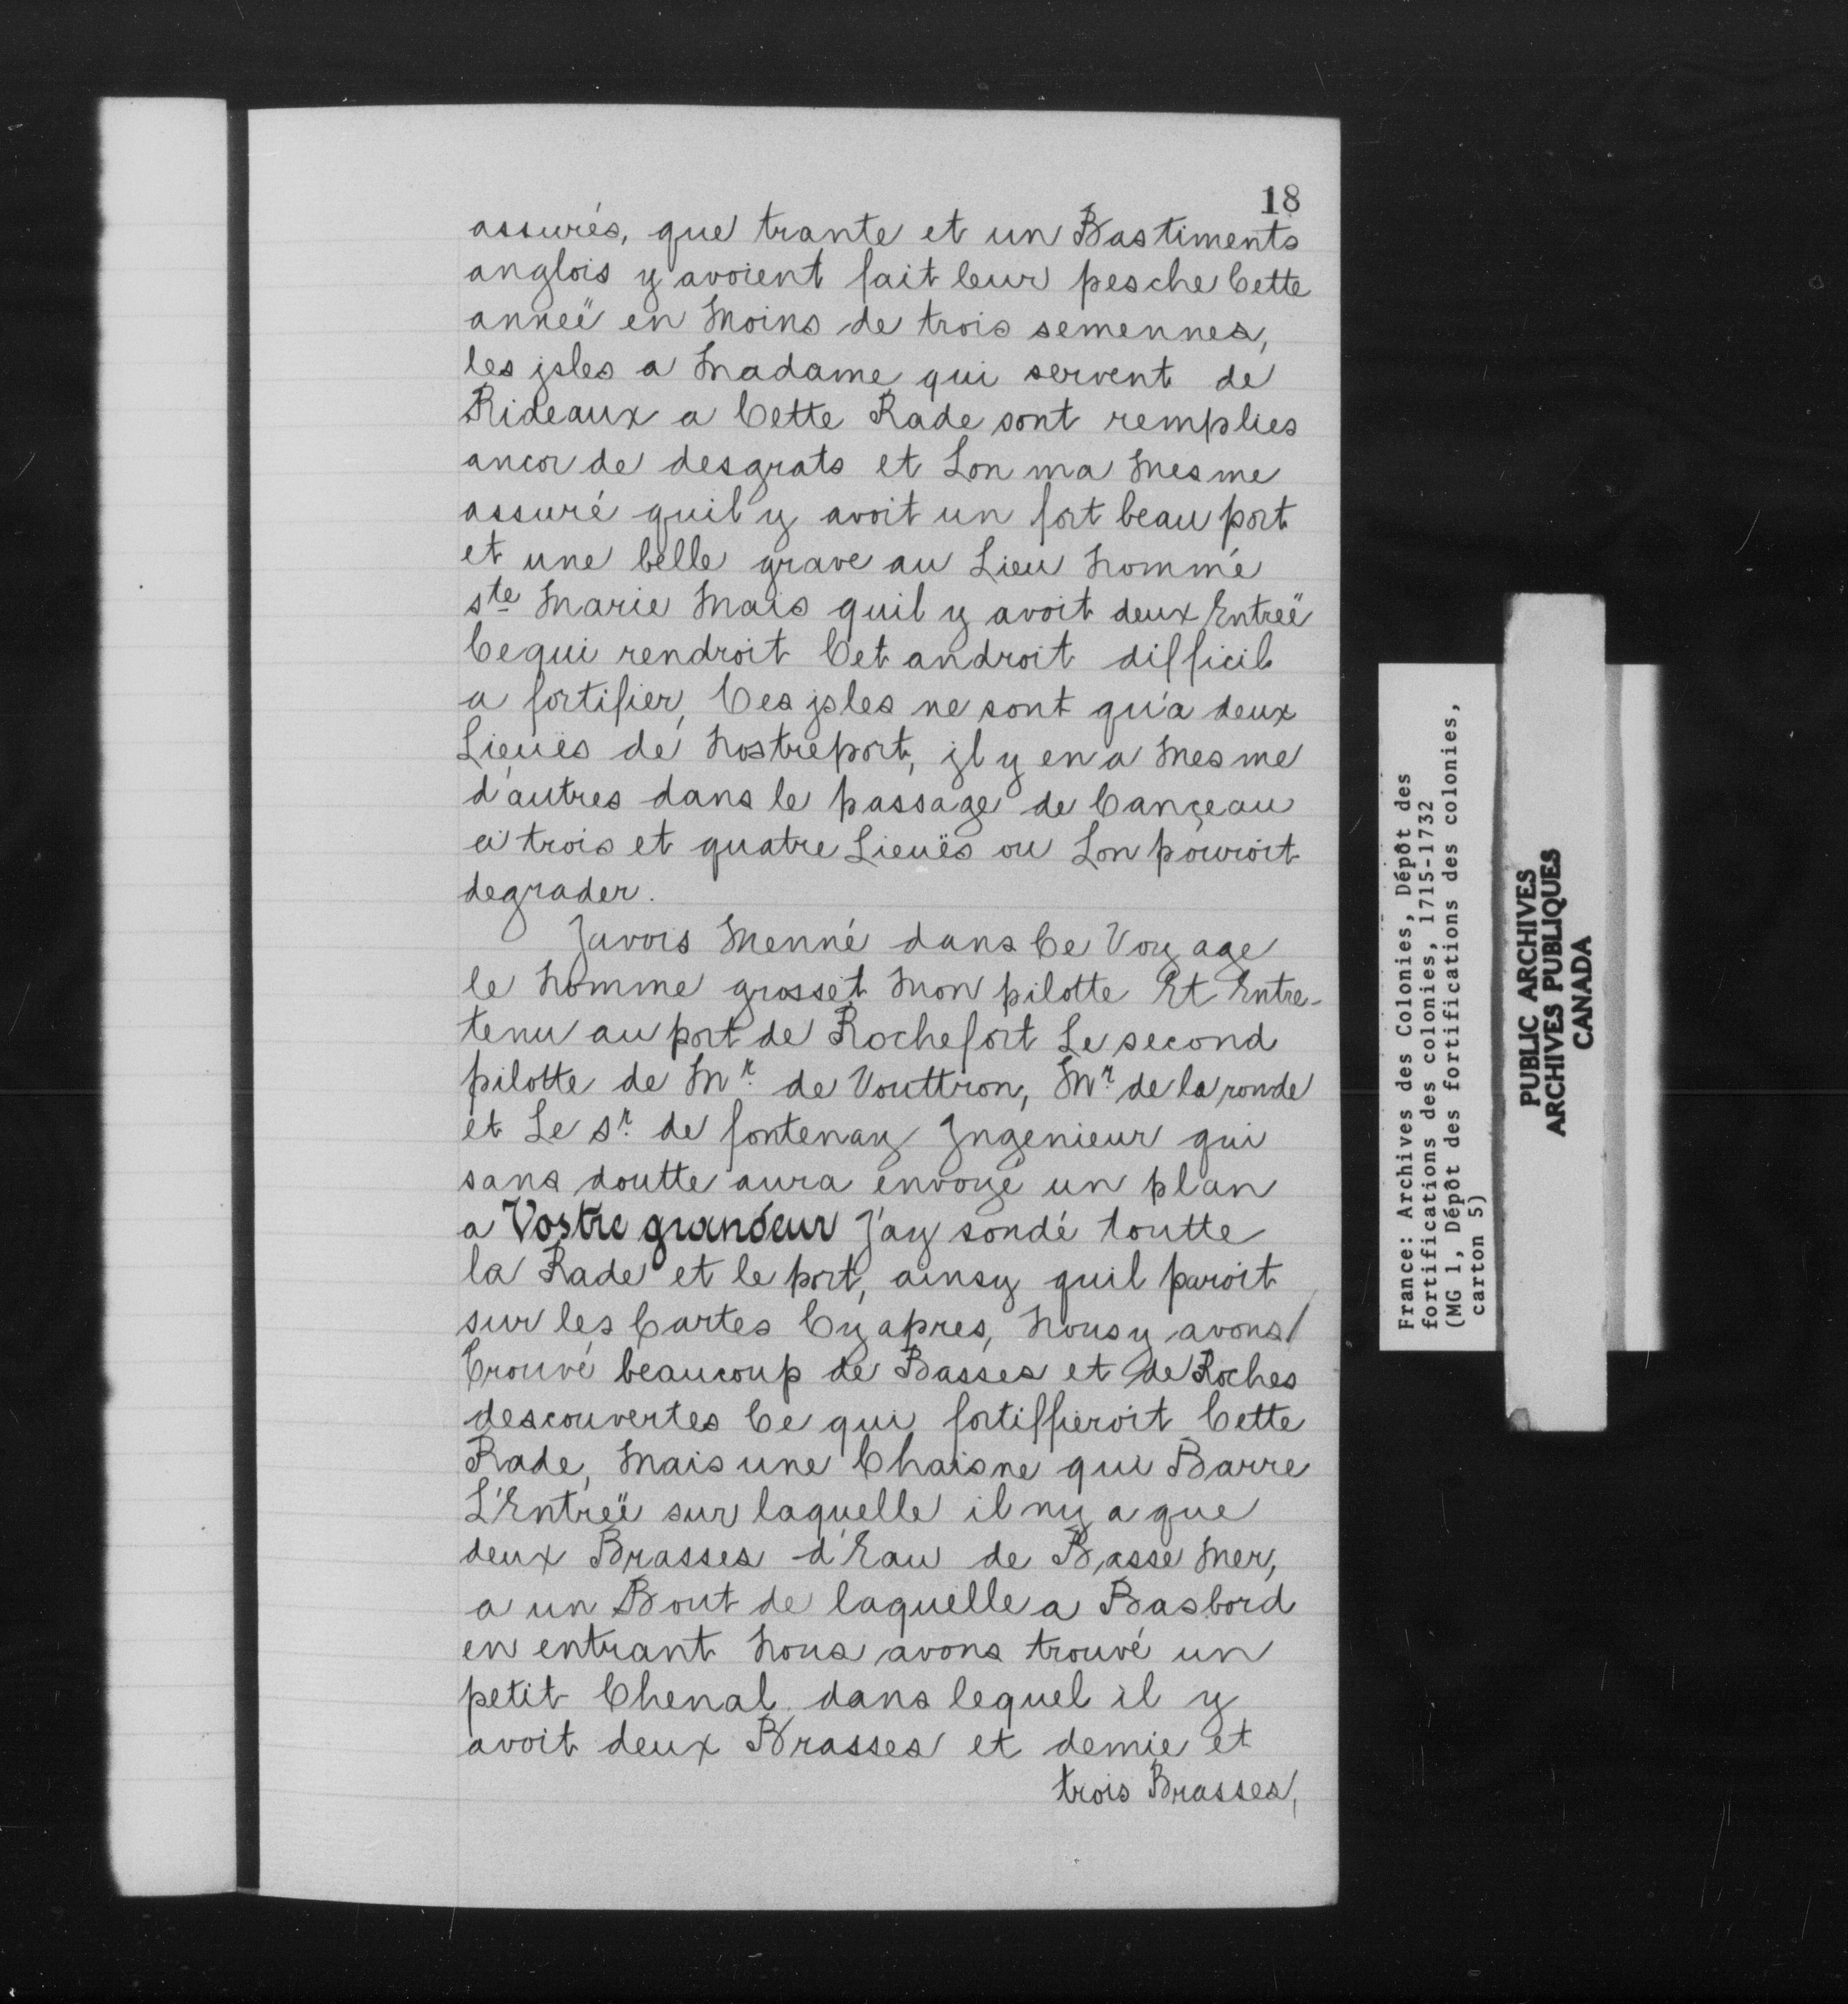 18
assurés, que trante et un Bastiments
anglois y avoient fait leur pesche Cette
anneë en Moins de trois semennes,
les jsles a Madame qui servent de
Rideaux a Cette Rade sont remplies
ancor de desgrats et Lon ma Mesme
assuré quil y avoit un fort beau port
et une belle grave au Lieu Nommé
ste Marie Mais quil y avoit deux Entreë
Cequi rendroit Cet androit difficil
a fortifier, Ces jsles ne sont qu'a deux
Lieuës de Nostre port, jl y en a Mesme
d'autres dans le passage de Cançeau
a trois et quatre Lieuës ou Lon pouroit
degrader.
Javois Menné dans Ce Voyage
le Nomme grosset Mon pilotte Et Entre-
tenu au port de Rochefort Le second
pilotte de Mr. de Vouttron, Mr. de la ronde
et Le sr. de fontenay Jngenieur qui
sans doutte aura envoyé un plan
a Vostre grandeur J'ay sondé toutte
la Rade et le port, ainsy quil paroit
sur les Cartes Cy apres, Nous y avons
trouvé beaucoup de Basses et de Roches
descouvertes Ce qui fortiffieroit Cette
Rade, Mais une Chaisne qui Barre
L'Entreë sur laquelle il ny a que
deux Brasses d'Eau de Basse Mer,
a un Bout de laquelle a Basbord
en entrant Nous avons trouvé un
petit Chenal dans lequel il y
avoit deux Brasses et demie et
trois Brasses,
France: Archives des Colonies, Dépôt des
fortifications des colonies, 1715-1732
(MG 1, Dépôt des fortifications des colonies,
carton 5)
PUBLIC ARCHIVES
ARCHIVES PUBLIQUES
CANADA